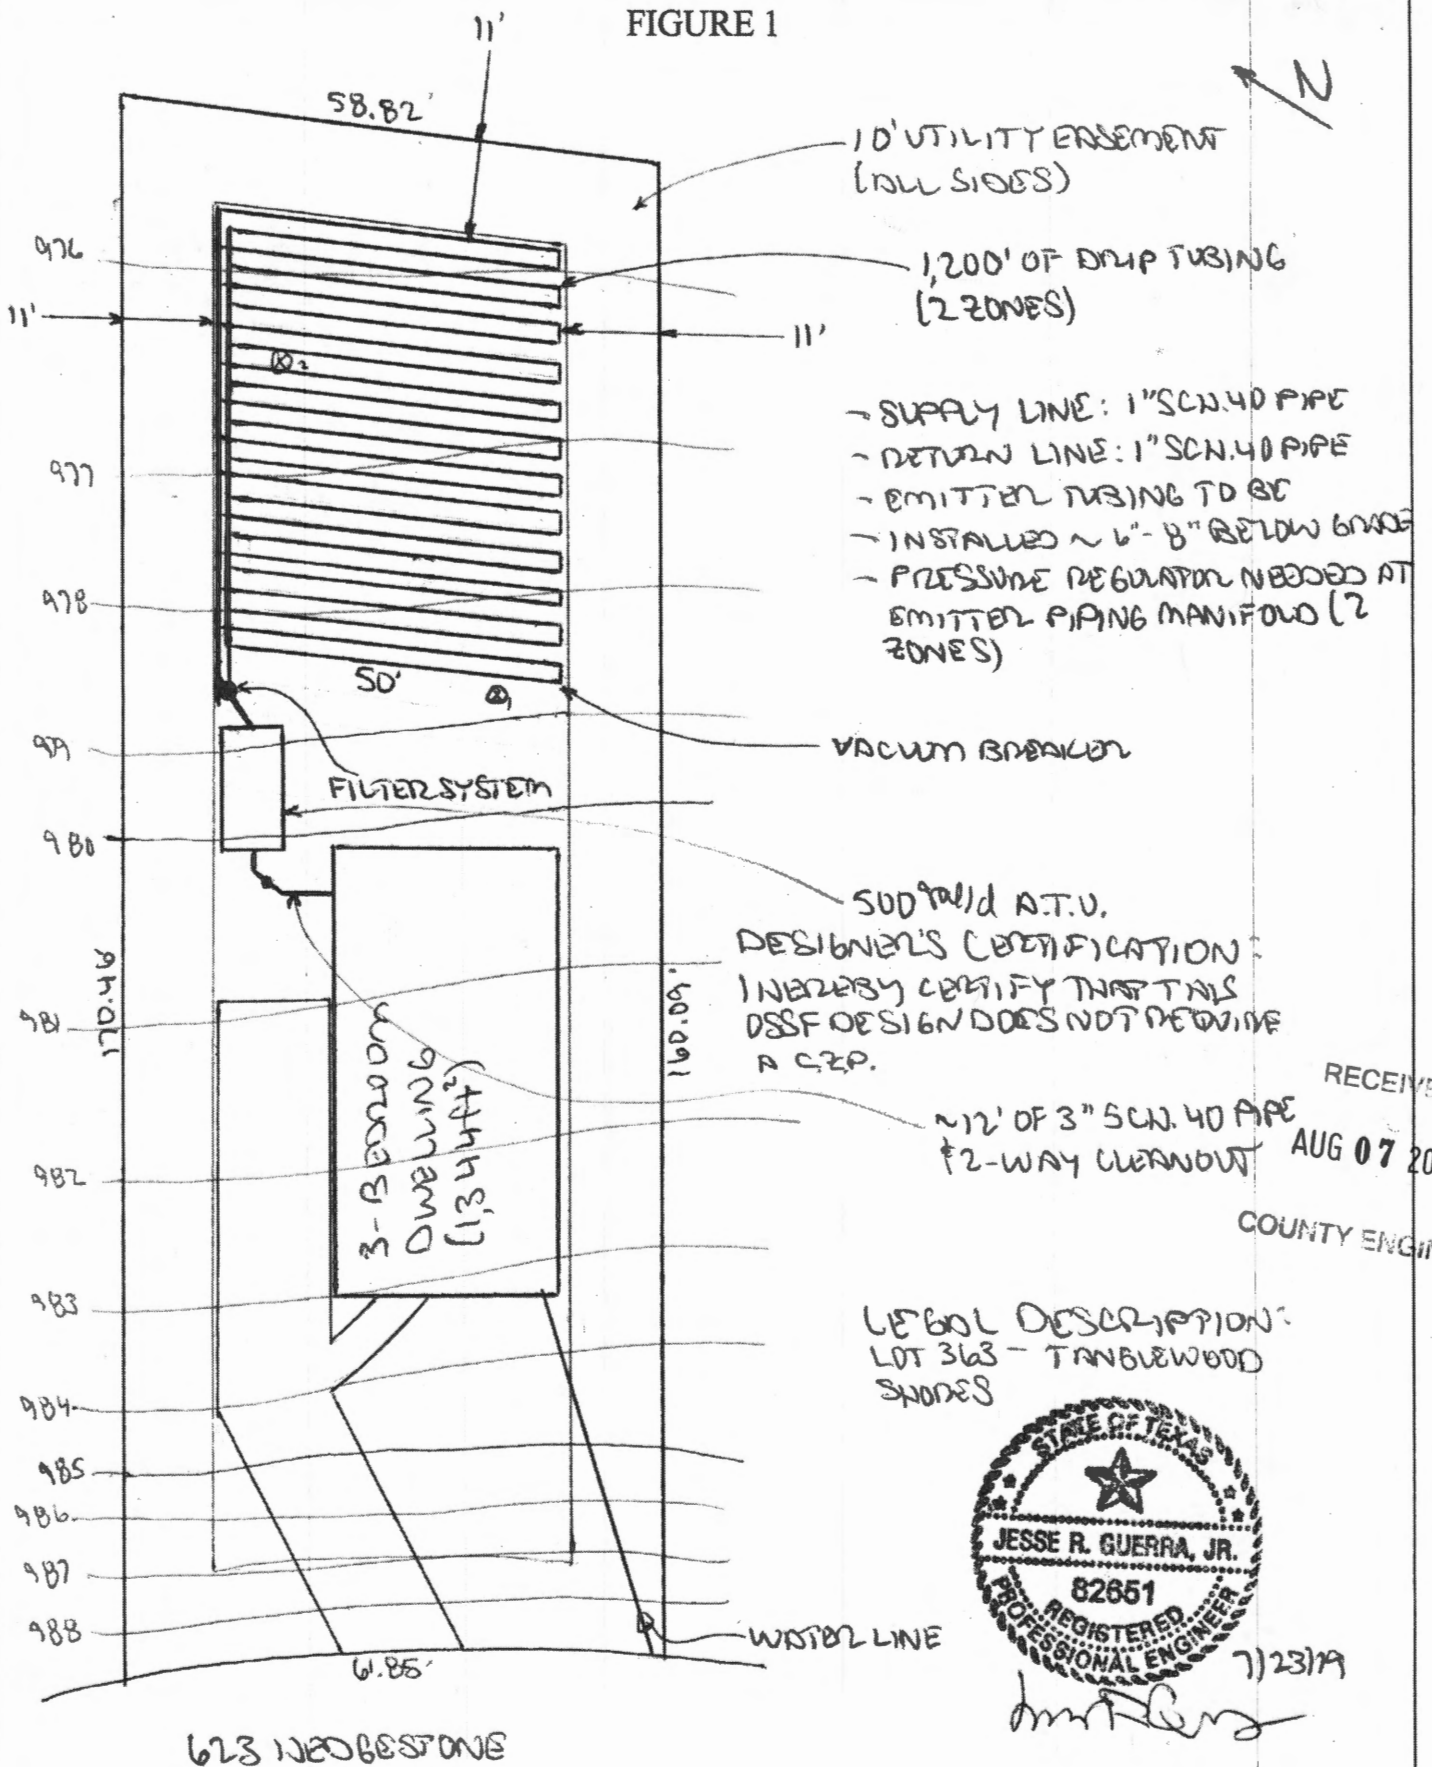 FIGURE 1
11'
N
58.82'
10' UTILITY EASEMENT
(ALL SIDES)
976
1,200' OF DRIP TUBING
(2 ZONES)
11'
11'
2
- SUPPLY LINE: 1" SCH. 40 PIPE
- RETURN LINE: 1" SCH. 40 PIPE
- EMITTER TUBING TO BE
- INSTALLED ~ 6"- 8" BELOW GRADE
- PRESSURE REGULATOR NEEDED AT
EMITTER PIPING MANIFOLD (2
ZONES)
977
978
50'
1
979
VACUUM BREAKER
FILTER SYSTEM
980
500 gal/d A.T.U.
DESIGNER'S CERTIFICATION:
I HEREBY CERTIFY THAT THIS
OSSF DESIGN DOES NOT REQUIRE
A C.Z.P.
981
170.46
160.09'
3-BEDROOM
DWELLING
(1,344 ft²)
RECEIVE
~12' OF 3" SCH. 40 PIPE
& 2-WAY CLEANOUT
AUG 07 20
COUNTY ENGI
982
983
LEGAL DESCRIPTION:
LOT 363 - TANGLEWOOD
SHORES
984
985
986
987
988
STATE OF TEXAS
JESSE R. GUERRA, JR.
82651
REGISTERED
PROFESSIONAL ENGINEER
7/23/19
WATER LINE
61.85'
623 HEDGESTONE